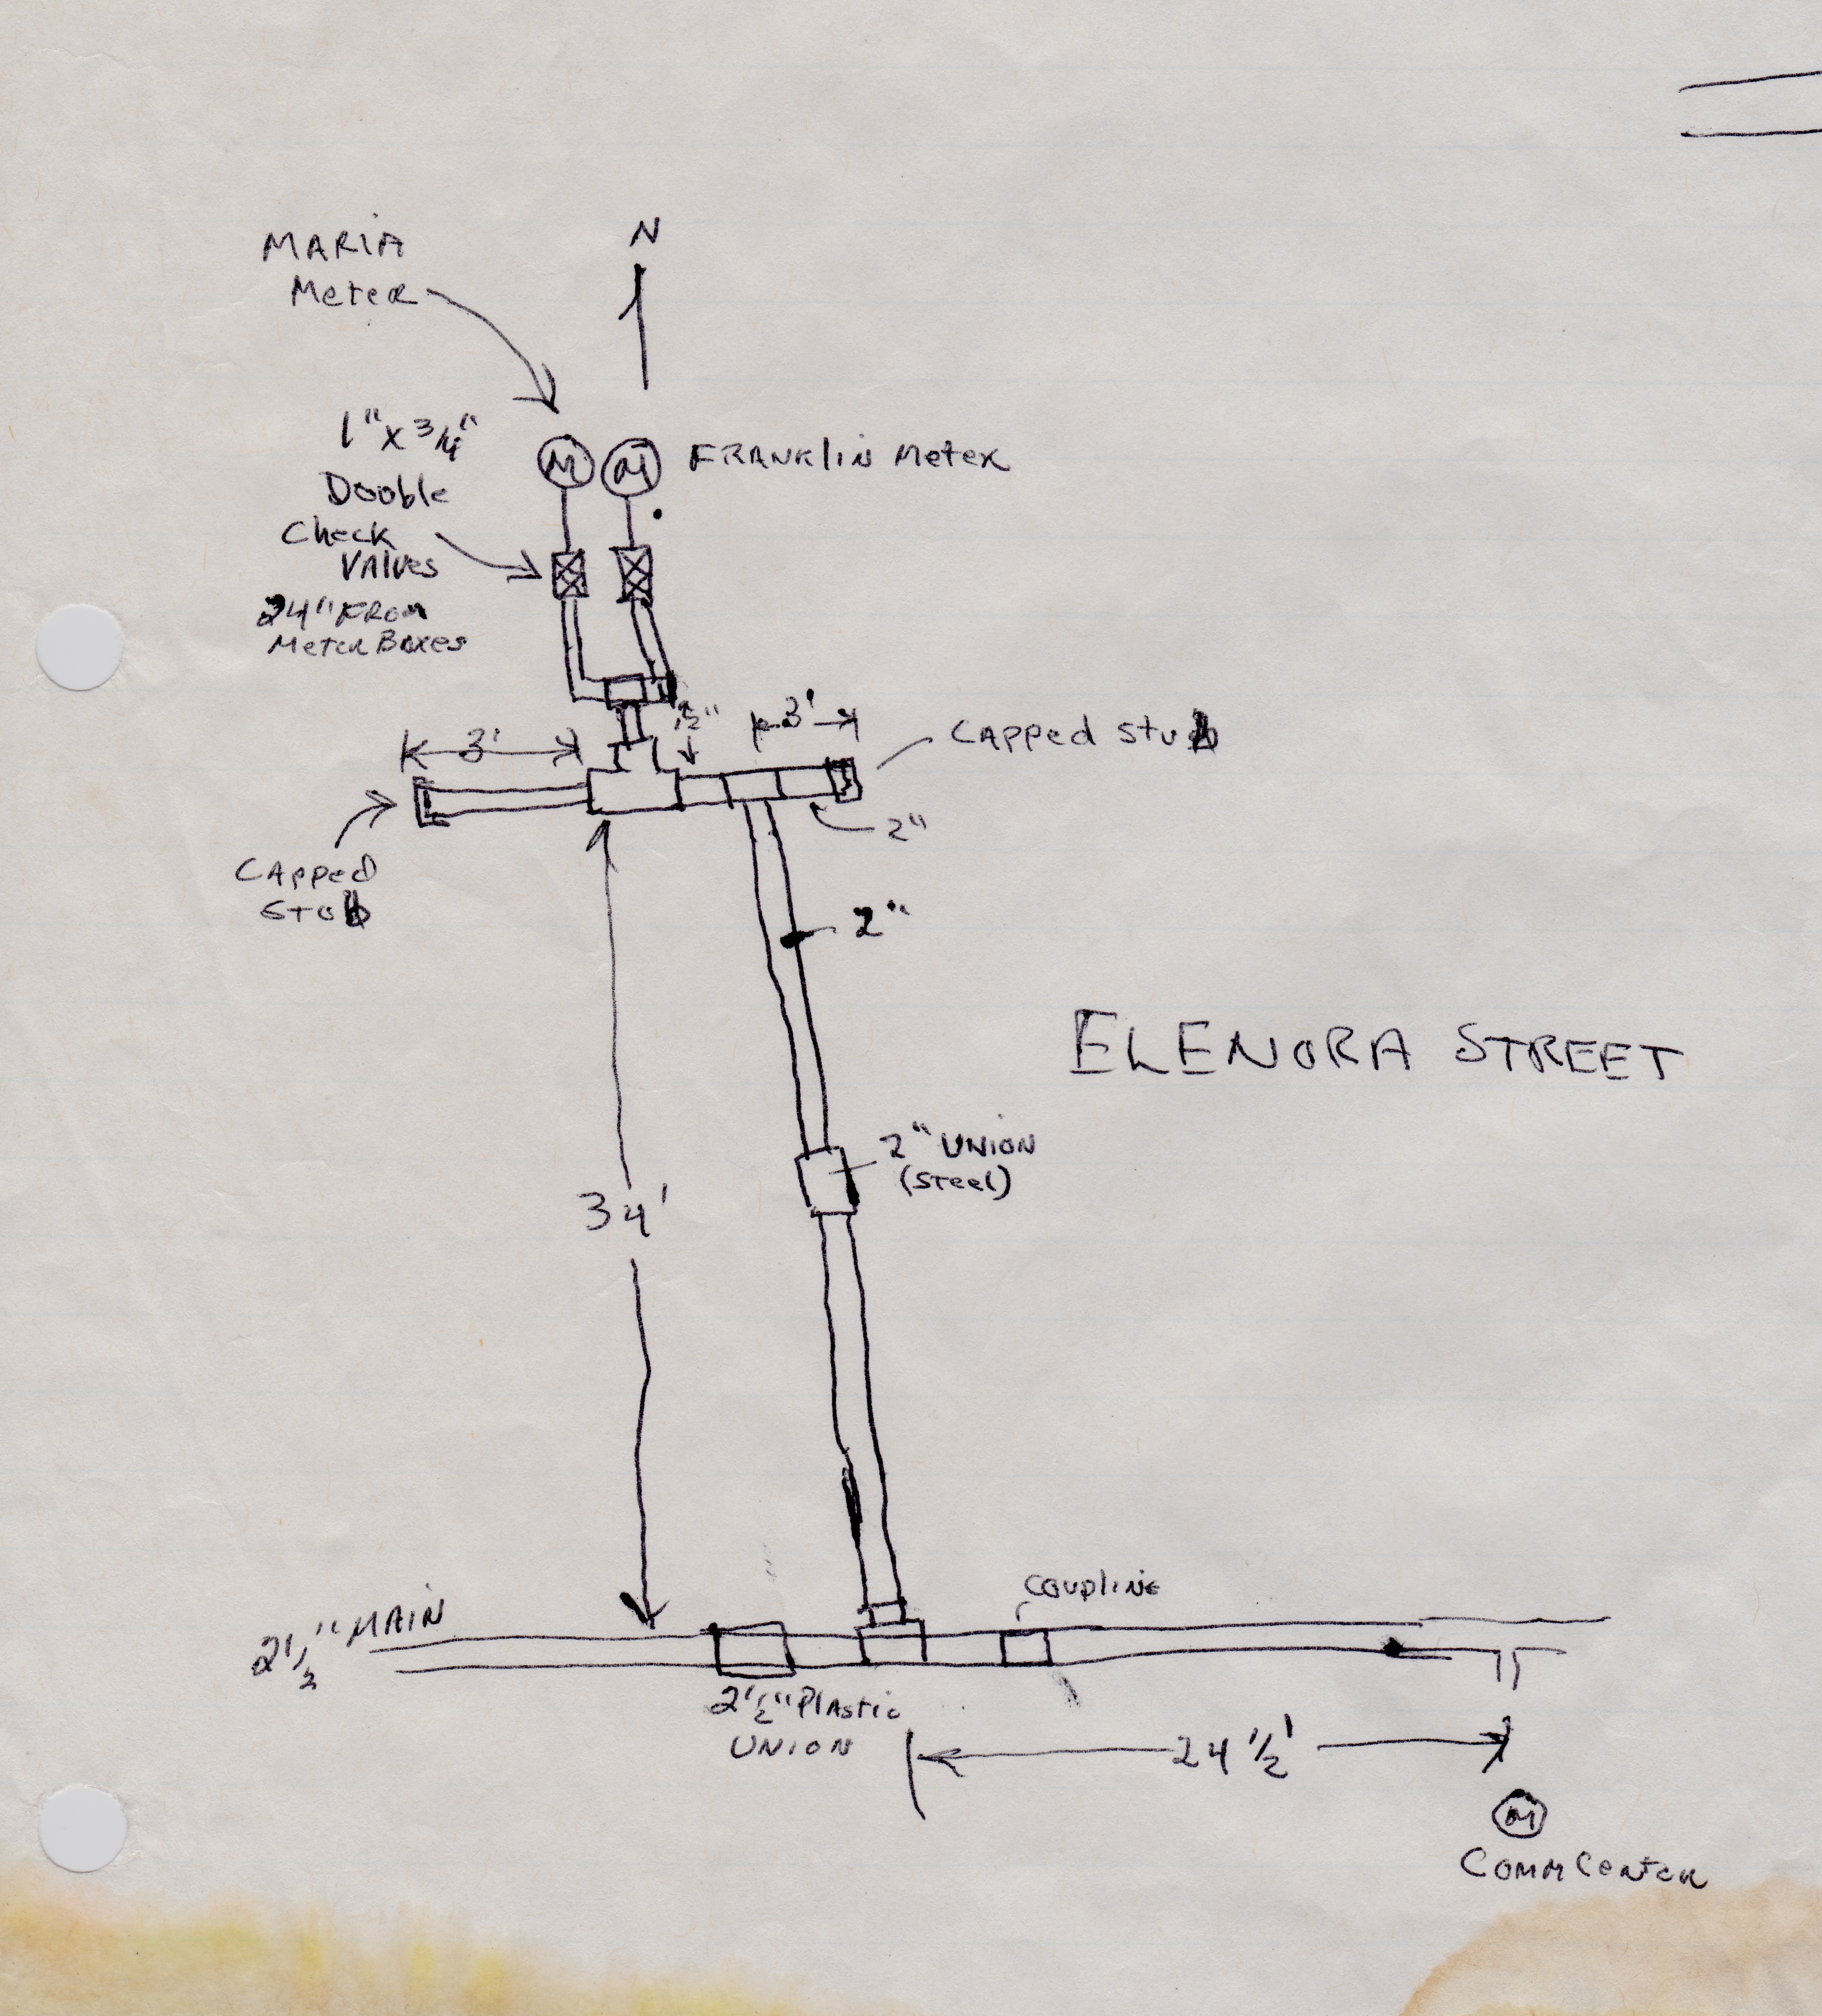 N
MARIA
Meter
1" x 3/4"
Dooble
Check
Valves
24" FROM
Meter Boxes
M
M
FRANKlin Meter
3'
1/2"
3'
CAPPed stub
2"
CAPPed
STub
2"
ELENORA STREET
2" UNION
(steel)
34'
COUPliNG
2 1/2" MAIN
2 1/2" PlAstic
UNION
24 1/2'
M
COMM Center